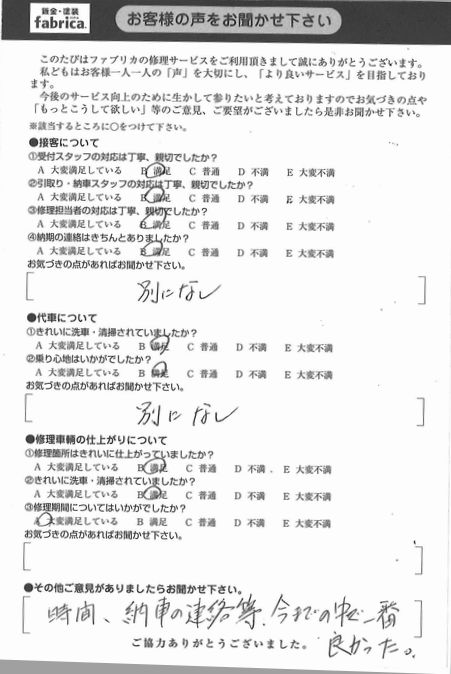 鈑金・塗装
fabrica.
お客様の声をお聞かせ下さい
このたびはファブリカの修理サービスをご利用頂きまして誠にありがとうございます。
私どもはお客様一人一人の「声」を大切にし、「より良いサービス」を目指しており
ます。
今後のサービス向上のために生かして参りたいと考えておりますのでお気づきの点や
「もっとこうして欲しい」等のご意見、ご要望がございましたら是非お聞かせ下さい。
※該当するところに○をつけて下さい。
●接客について
①受付スタッフの対応は丁寧、親切でしたか?
A 大変満足している B 満足 C 普通 D 不満 E 大変不満
②引取り・納車スタッフの対応は丁寧、親切でしたか?
A 大変満足している B 満足 C 普通 D 不満 E 大変不満
③修理担当者の対応は丁寧、親切でしたか?
A 大変満足している B 満足 C 普通 D 不満 E 大変不満
④納期の連絡はきちんとありましたか?
A 大変満足している B 満足 C 普通 D 不満 E 大変不満
お気づきの点があればお聞かせ下さい。
別になし
●代車について
①きれいに洗車・清掃されていましたか?
A 大変満足している B 満足 C 普通 D 不満 E 大変不満
②乗り心地はいかがでしたか?
A 大変満足している B 満足 C 普通 D 不満 E 大変不満
お気づきの点があればお聞かせ下さい。
別になし
●修理車輌の仕上がりについて
①修理箇所はきれいに仕上がっていましたか?
A 大変満足している B 満足 C 普通 D 不満 E 大変不満
②きれいに洗車・清掃されていましたか?
A 大変満足している B 満足 C 普通 D 不満 E 大変不満
③修理期間についてはいかがでしたか?
A 大変満足している B 満足 C 普通 D 不満 E 大変不満
お気づきの点があればお聞かせ下さい。
●その他ご意見がありましたらお聞かせ下さい。
時間、納車の連絡等、今までの中で一番
良かった。
ご協力ありがとうございました。